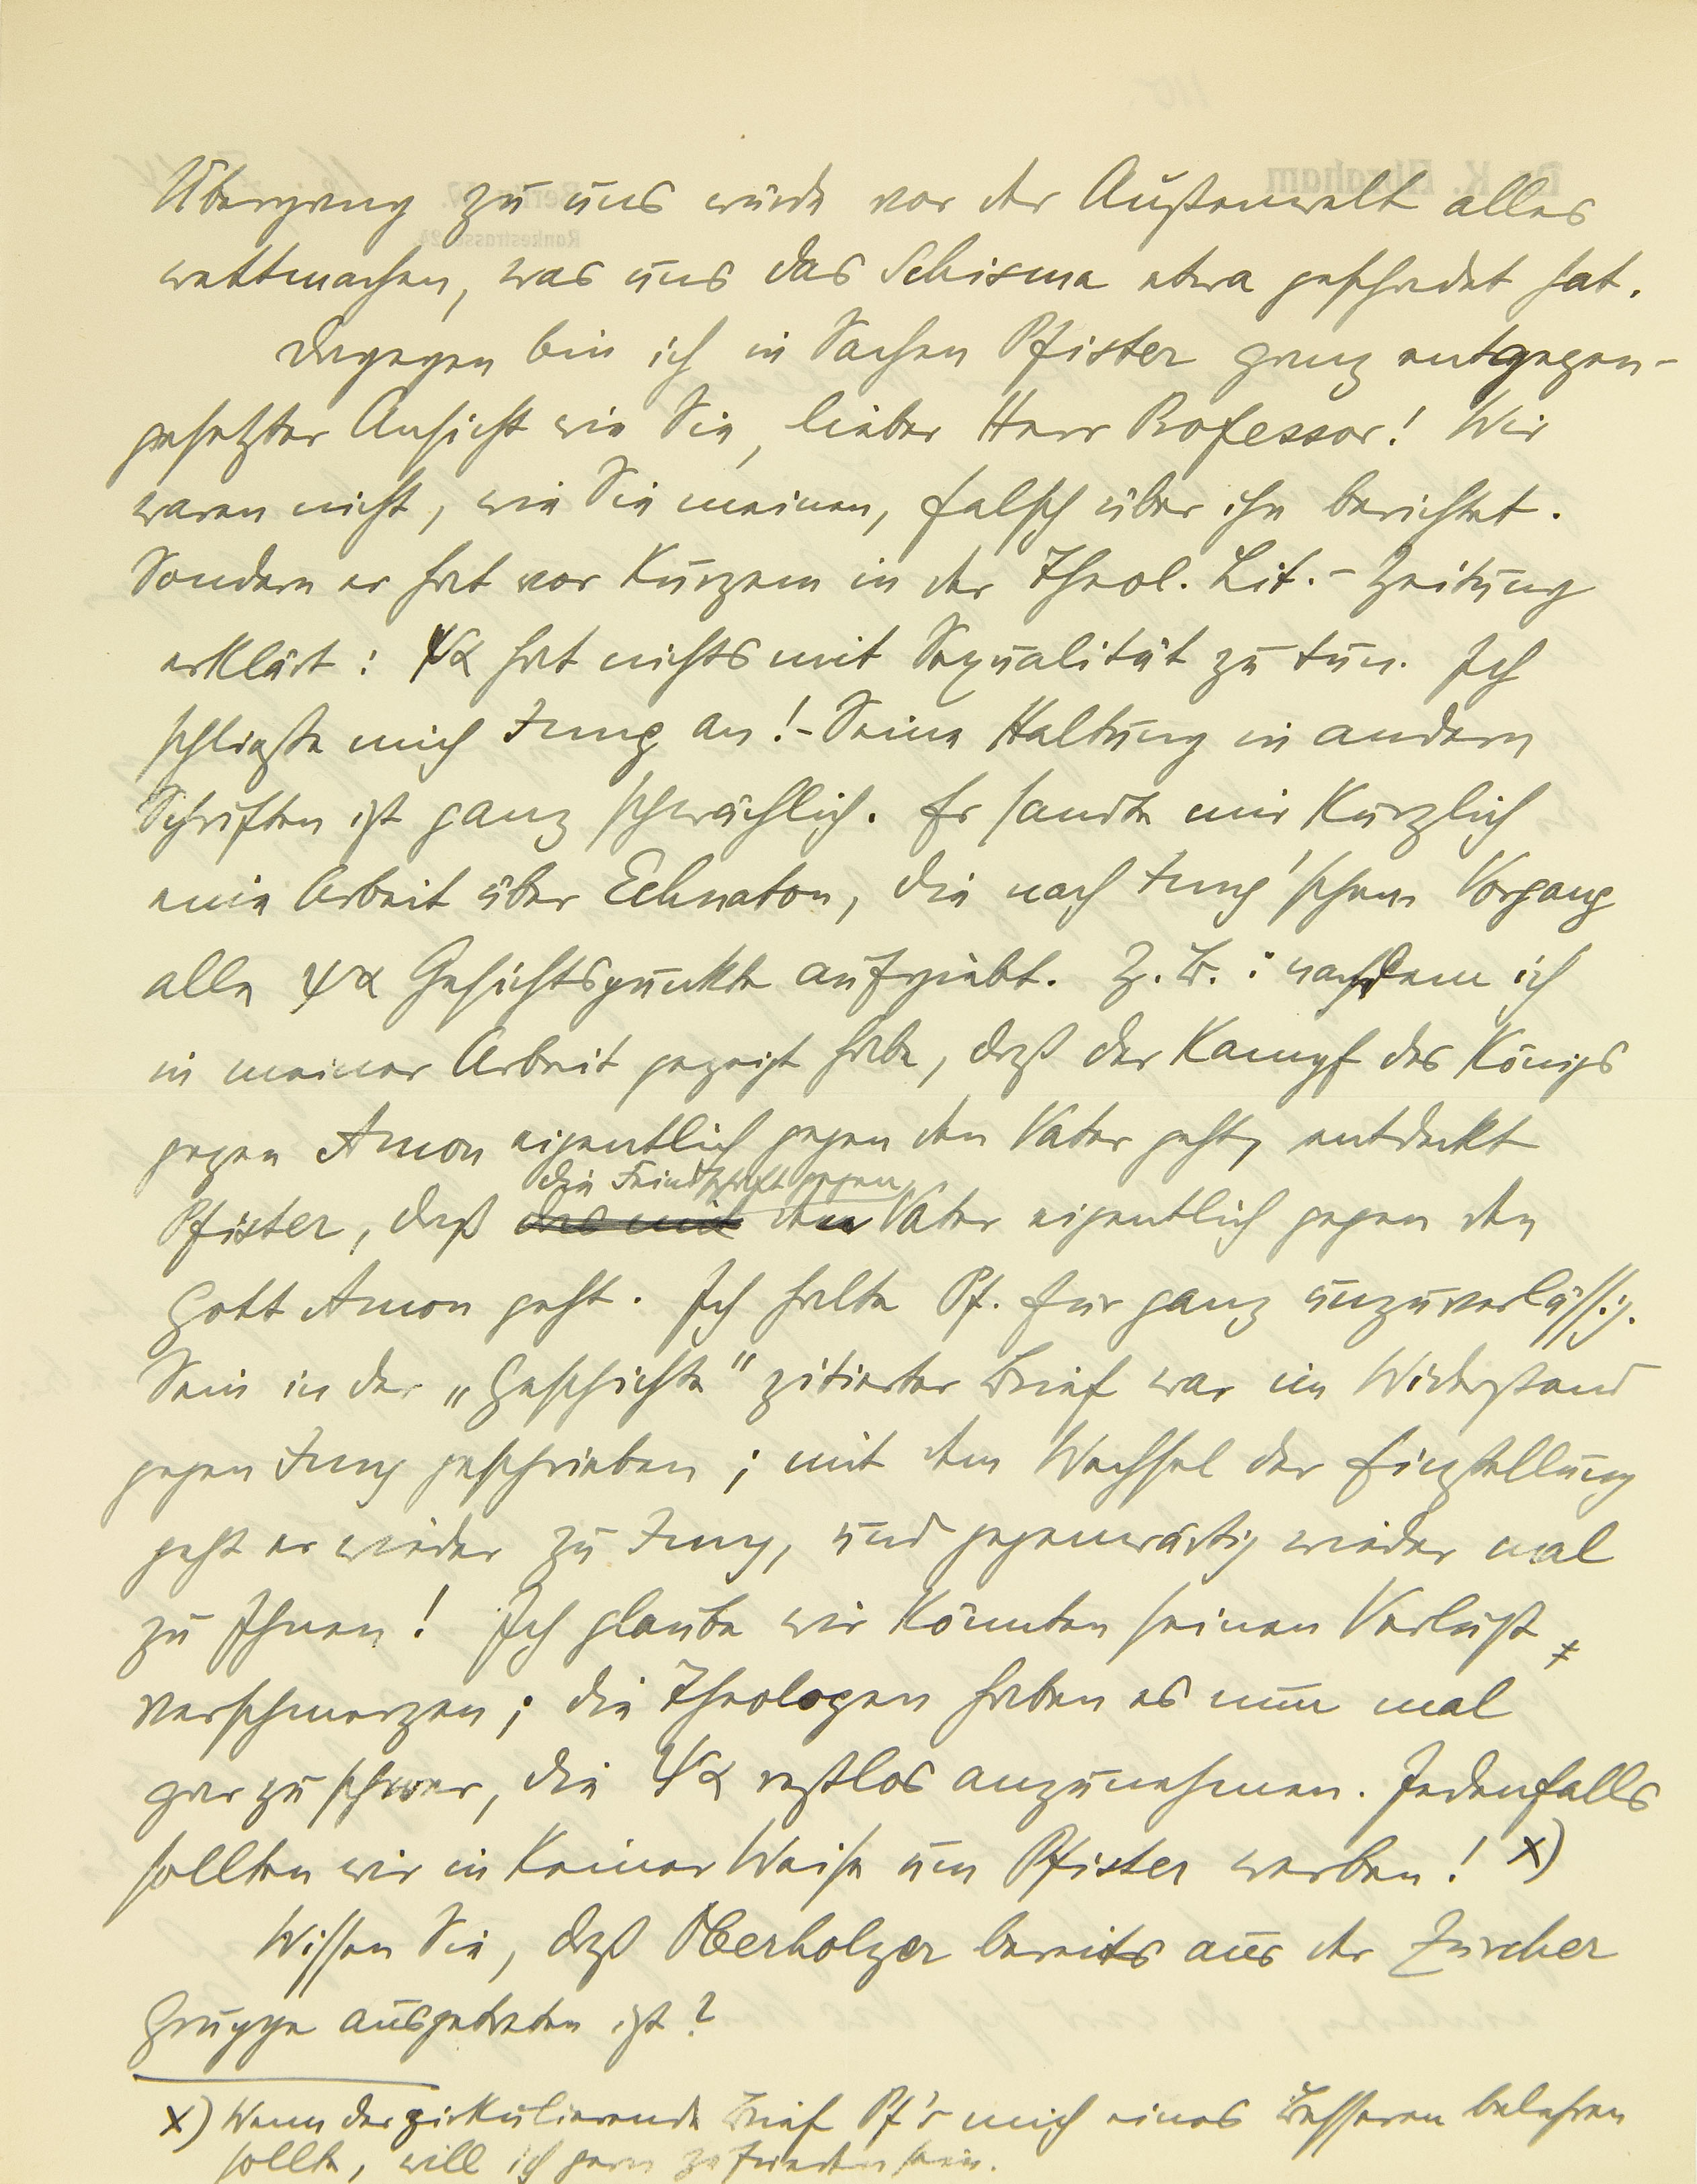 Übergang zu uns würde vor der Außenwelt alles
wettmachen, was uns das Schisma etwa geschadet hat.
Dagegen bin ich in Sachen Pfister ganz entgegen-
gesetzter Ansicht wie Sie, lieber Herr Professor! Wir
waren nicht, wie Sie meinen, falsch über ihn berichtet.
Sondern er hat vor Kurzem in der Theol. Lit.-Zeitung
erklärt: ΨΑ hat nichts mit Sexualität zu tun. Ich
schließe mich Jung an! - Seine Haltung in andern
Schriften ist ganz schwächlich. Er sandte mir kürzlich
eine Arbeit über Echnaton, die nach Jung'schem Vorgang
alle ψα Gesichtspunkte aufgiebt. Z. B.: nachdem ich
in meiner Arbeit gezeigt habe, daß der Kampf des Königs
gegen Amon eigentlich gegen den Vater geht, entdeckt
die Feindschaft gegen
Pfister, daß den Vater eigentlich gegen den
Gott Amon geht. Ich halte Pf. für ganz unzuverlässig.
Sein in der „Geschichte" zitierter Brief war im Widerstand
gegen Jung geschrieben; mit dem Wechsel der Einstellung
geht er wieder zu Jung, und gegenwärtig wieder mal
zu Ihnen! Ich glaube wir könnten seinen Verlust
verschmerzen; die Theologen haben es nun mal
gar zu schwer, die ΨΑ restlos anzunehmen. Jedenfalls
sollten wir in keiner Weise um Pfister werben! x)
Wissen Sie, daß Oberholzer bereits aus der Zürcher
Gruppe ausgetreten ist?
x) Wenn der zirkulierende Brief Pf's mich eines Besseren belehren
sollte, will ich gern zufrieden sein.
Dr. K. Abraham
Berlin W.
Rankestrasse 24